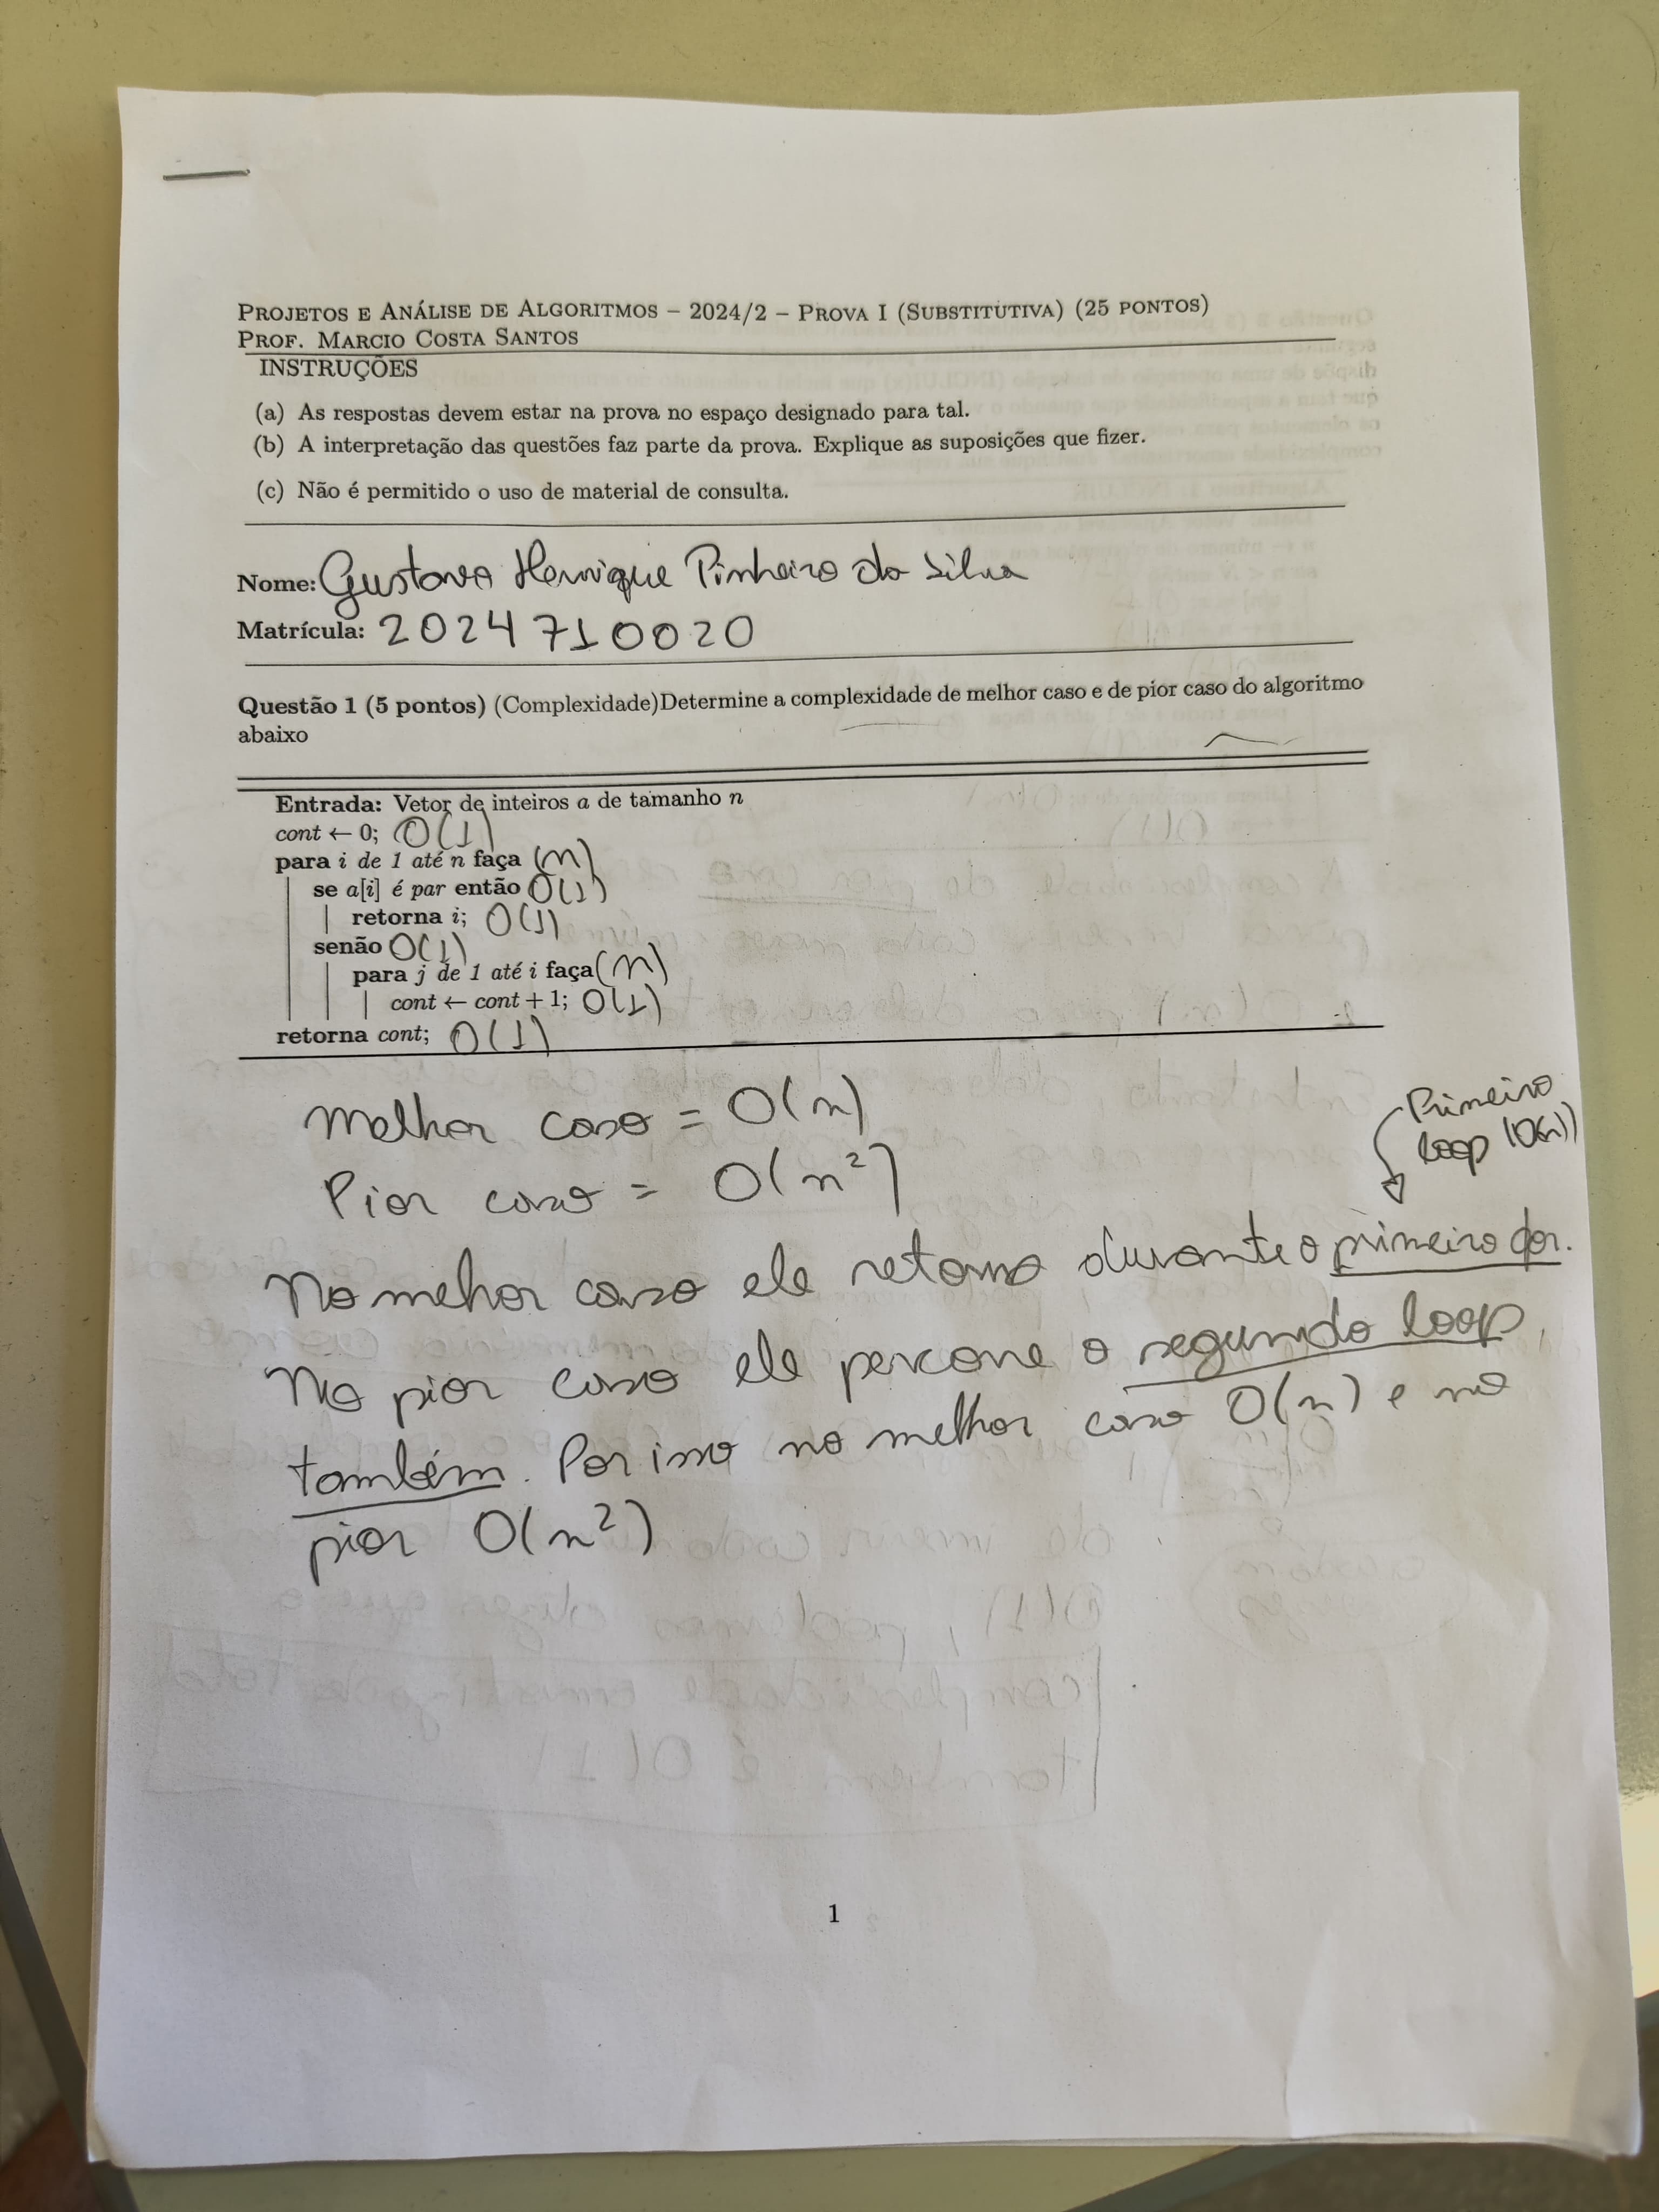 PROJETOS E ANÁLISE DE ALGORITMOS – 2024/2 – PROVA I (SUBSTITUTIVA) (25 PONTOS)
PROF. MARCIO COSTA SANTOS
INSTRUÇÕES
(a) As respostas devem estar na prova no espaço designado para tal.
(b) A interpretação das questões faz parte da prova. Explique as suposições que fizer.
(c) Não é permitido o uso de material de consulta.
Nome: Gustavo Henrique Pinheiro da Silva
Matrícula: 2024710020
Questão 1 (5 pontos) (Complexidade)Determine a complexidade de melhor caso e de pior caso do algoritmo
abaixo
Entrada: Vetor de inteiros a de tamanho n
cont ← 0; O(1)
para i de 1 até n faça (n)
se a[i] é par então O(1)
retorna i; O(1)
senão O(1)
para j de 1 até i faça (n)
cont ← cont + 1; O(1)
retorna cont; O(1)
Melhor caso = O(n)
Pior caso = O(n²)
Primeiro
loop (O(n))
No melhor caso ele retorna durante o primeiro for.
No pior caso ele percorre o segundo loop
também. Por isso no melhor caso O(n) e no
pior O(n²)
1